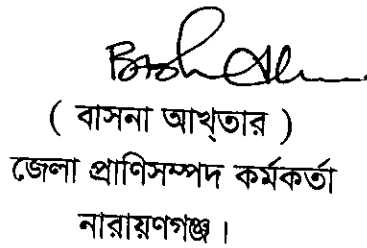 ( বাসনা আখ্‌তার )
জেলা প্রাণিসম্পদ কর্মকর্তা
নারায়ণগঞ্জ।